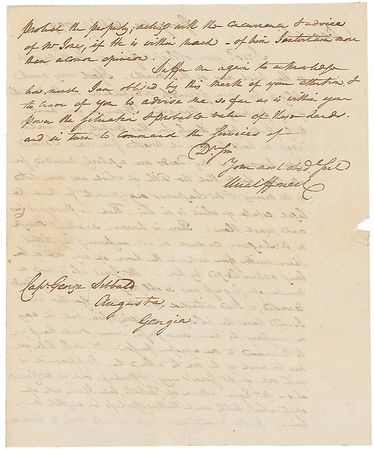 protect the property, acting with the concurrence & advice
of Mr Ine, if he is within reach - of him I entertain more
than a common opinion.
Suffer me again to acknowledge
how much I am obliged by this mark of your attention, &
to crave of you to advise me, so far as is within your
power the situation & probable value of these Lands.
and in turn to command the services of
Dr Sir
Your most obedt Servt
Capt George Sibbald
Augusta,
Georgia.